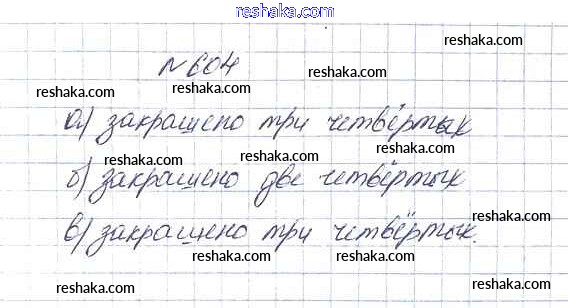 reshaka.com
reshaka.com
№604 reshaka.com
reshaka.com reshaka.com
reshaka.com
а) закрашено три четвёртых
reshaka.com reshaka.com reshaka.com
б) закрашено две четвёртых
reshaka.com reshaka.com
в) закрашено три четвёртых.
reshaka.com
reshaka.com reshaka.com